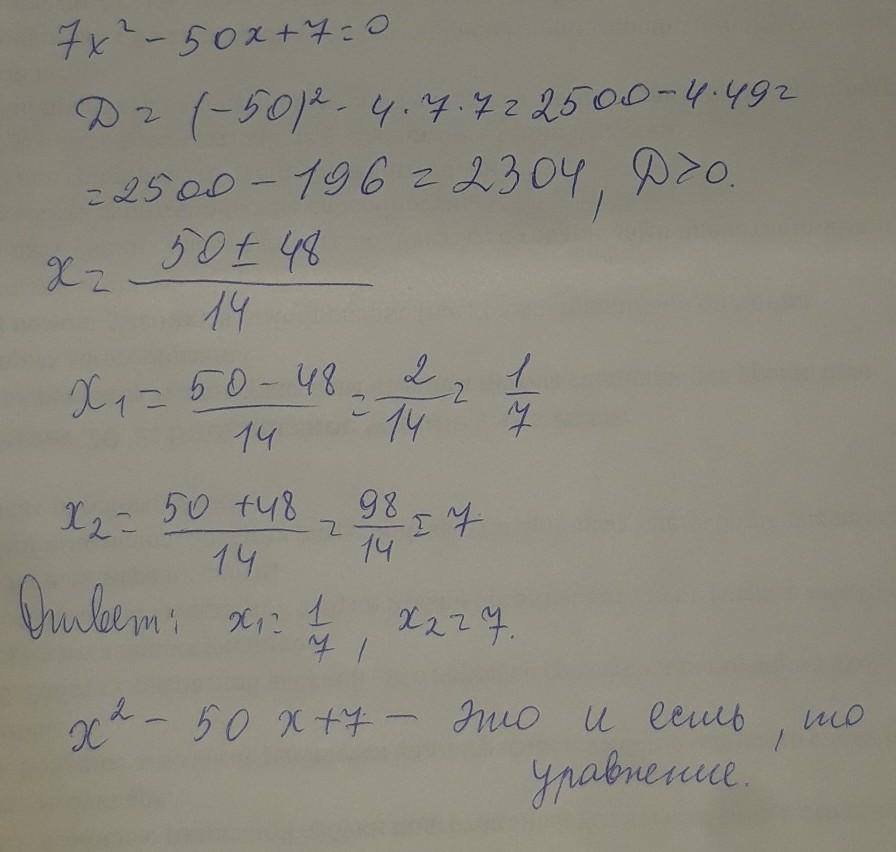 7x² - 50x + 7 = 0
Д = (-50)² - 4 · 7 · 7 = 2500 - 4 · 49 =
= 2500 - 196 = 2304, Д > 0.
x = (50 ± 48)/14
x₁ = (50 - 48)/14 = 2/14 = 1/7
x₂ = (50 + 48)/14 = 98/14 = 7
Ответ: x₁ = 1/7, x₂ = 7.
x² - 50 x + 7 - это и есть, то
уравнение.